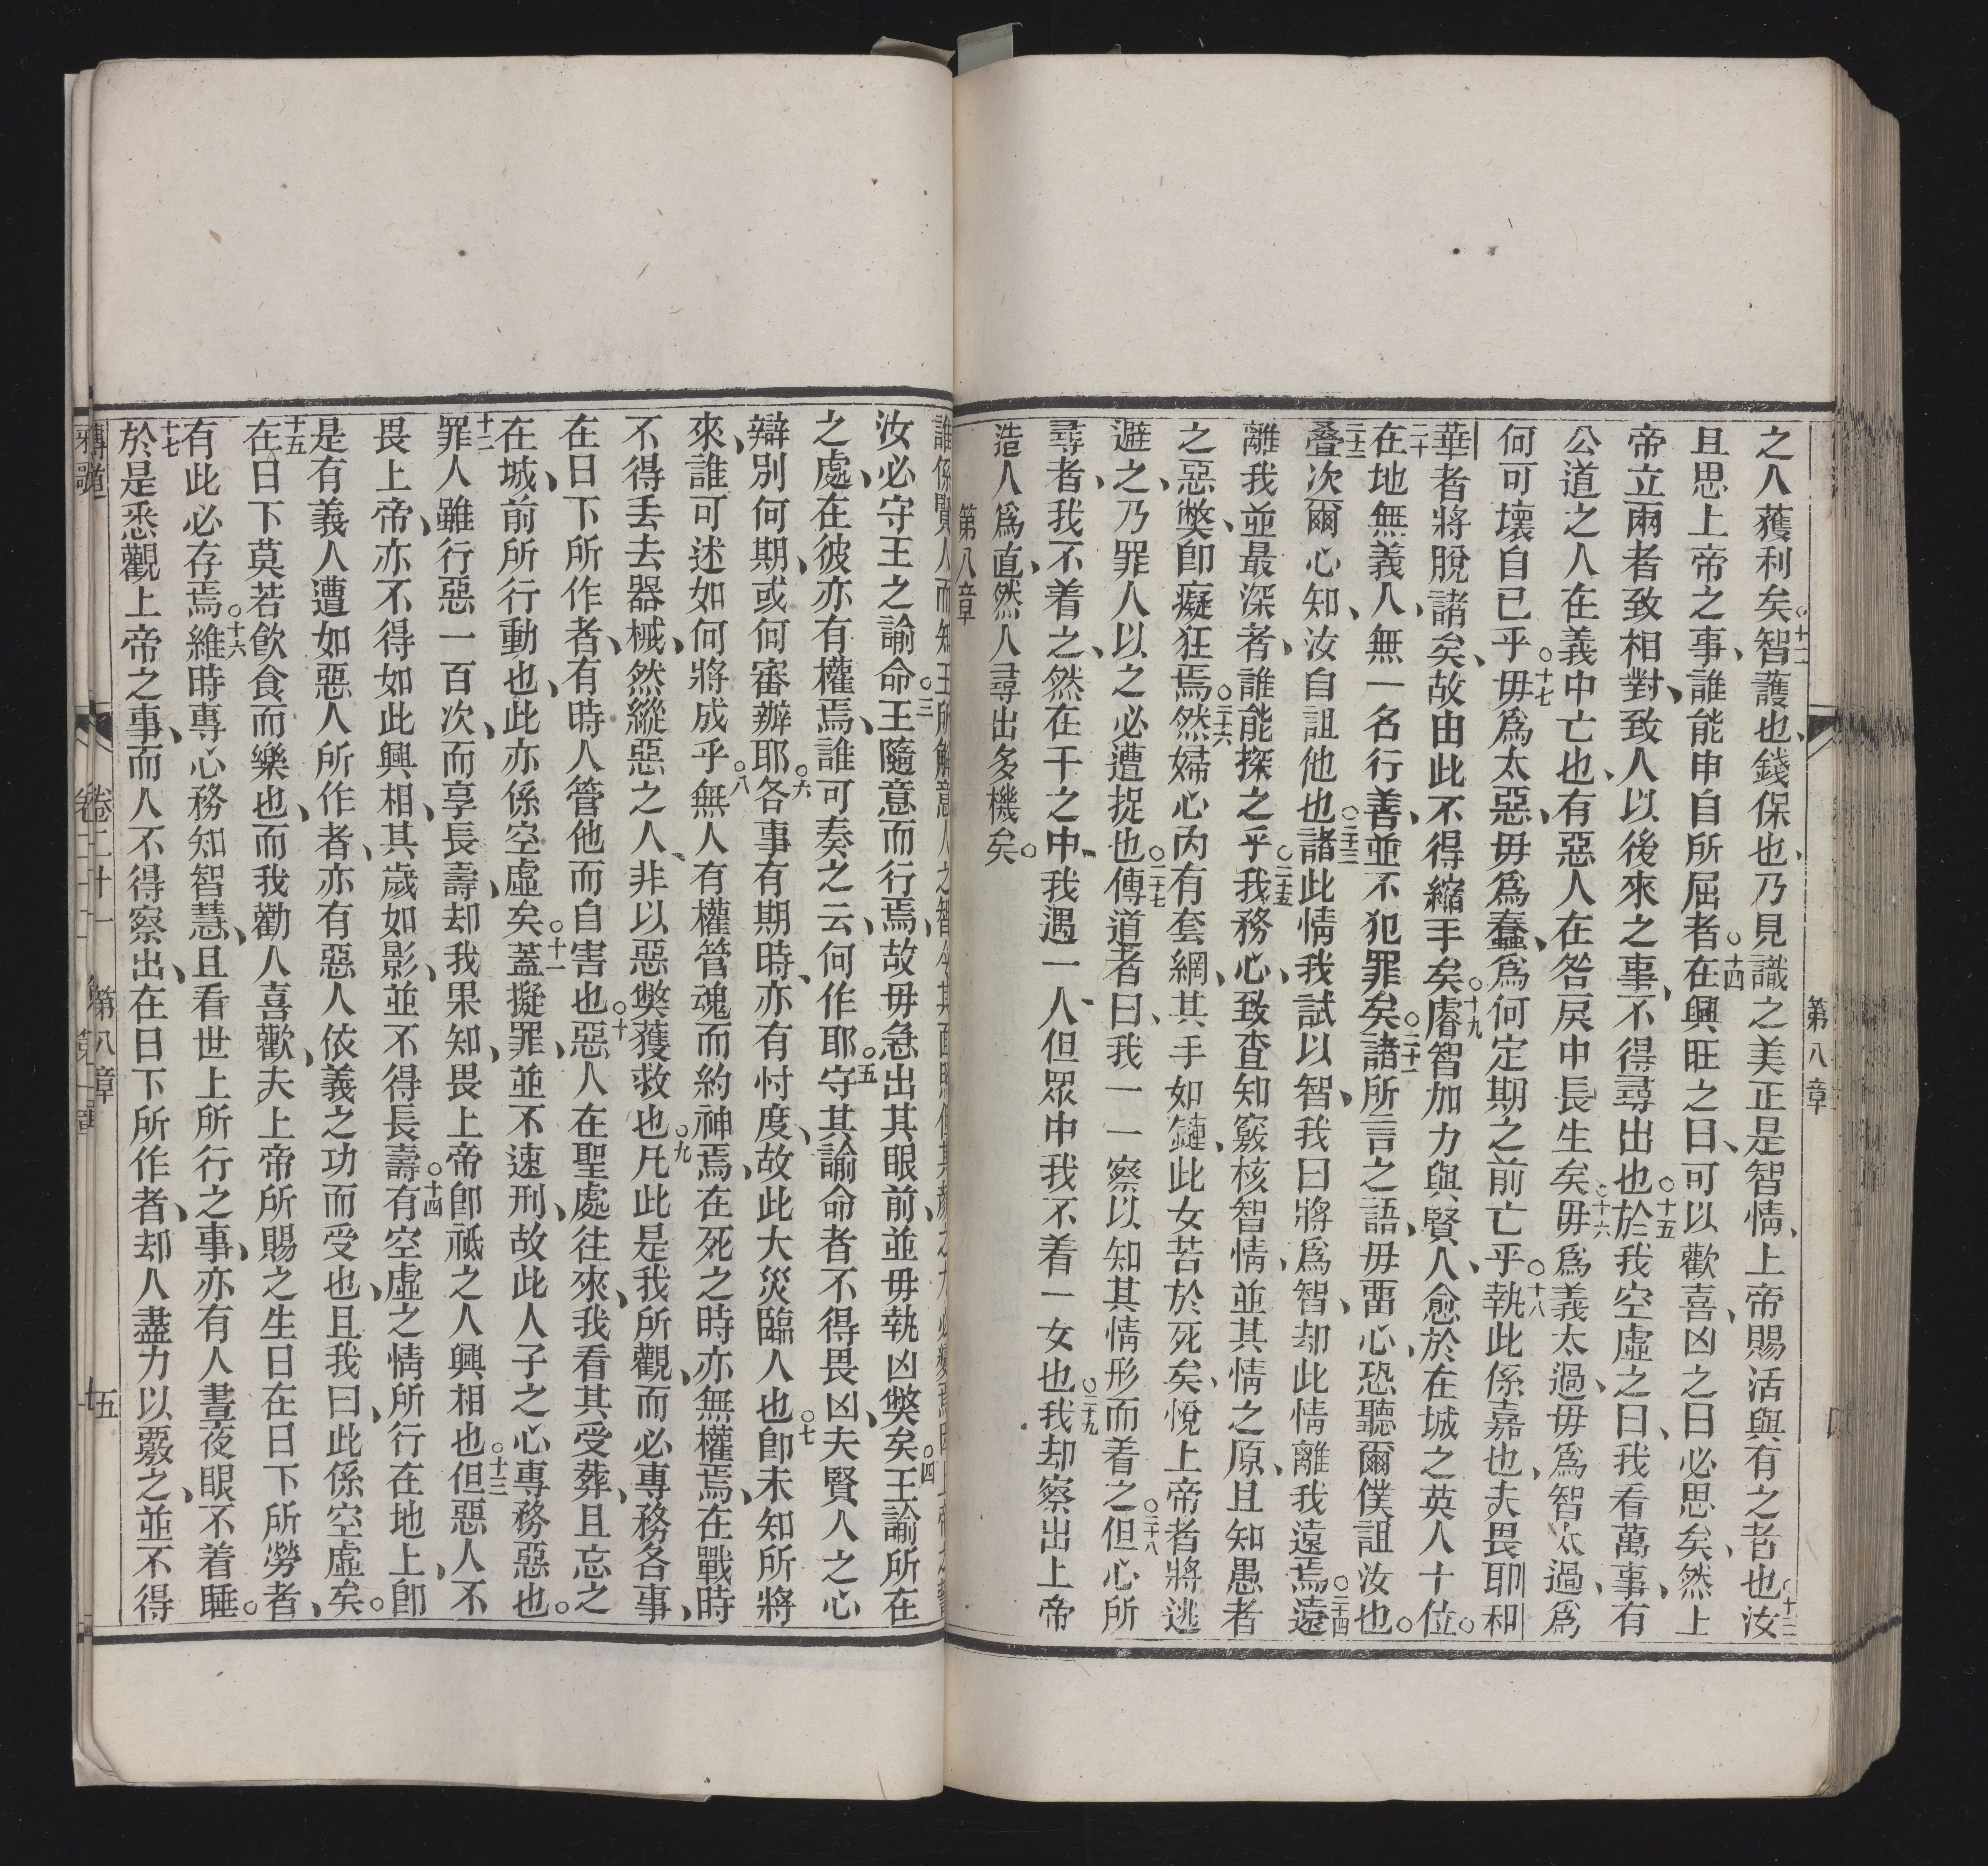 之人獲利矣○十二智護也錢保也乃見識之美正是智情上帝賜活與有之者也○十三汝
且思上帝之事誰能申自所屈者○十四在興旺之日可以歡喜凶之日必思矣然上
帝立兩者致相對致人以後來之事不得尋出也○十五於我空虛之日我看萬事有
公道之人在義中亡也有惡人在咎戾中長生矣○十六毋爲義太過毋爲智太過爲
何可壞自已乎○十七毋爲太惡毋爲蠢爲何定期之前亡乎○十八執此係嘉也夫畏耶和
華者將脫諸矣故由此不得縮手矣○十九睿智加力與賢人愈於在城之英人十位○
二十在地無義人無一名行善並不犯罪矣○二十一諸所言之語毋畱心恐聽爾僕詛汝也○
二十二疊次爾心知汝自詛他也○二十三諸此情我試以智我曰將爲智却此情離我遠焉○二十四遠
離我並最深者誰能探之乎○二十五我務心致查知竅核智情並其情之原且知愚者
之惡獘卽癡狂焉○二十六然婦心內有套網其手如鏈此女苦於死矣悅上帝者將逃
避之乃罪人以之必遭捉也○二十七傳道者曰我一一察以知其情形而着之○二十八但心所
尋者我不着之然在千之中我遇一人但眾中我不着一女也○二十九我却察出上帝
造人爲直然人尋出多機矣○
第八章
第八章
誰係賢人而知王所解意人之智令其面
汝必守王之諭命○三王隨意而行焉故毋急出其眼前並毋執凶獘矣○四王諭所在
之處在彼亦有權焉誰可奏之云何作耶○五守其諭命者不得畏凶夫賢人之心
辯別何期或何審辦耶○六各事有期時亦有忖度故此大災臨人也○七卽未知所將
來誰可述如何將成乎○八無人有權管魂而約神焉在死之時亦無權焉在戰時
不得丢去器械然縱惡之人非以惡獘獲救也○九凡此是我所觀而必專務各事
在日下所作者有時人管他而自害也○十惡人在聖處往來我看其受葬且忘之
在城前所行動也此亦係空虛矣○十一蓋擬罪並不速刑故此人子之心專務惡也○
十二罪人雖行惡一百次而享長壽却我果知畏上帝卽祗之人興相也○十三但惡人不
畏上帝亦不得如此興相其歲如影並不得長壽○十四有空虛之情所行在地上卽
是有義人遭如惡人所作者亦有惡人依義之功而受也且我曰此係空虛矣○
十五在日下莫若飲食而樂也而我勸人喜歡夫上帝所賜之生日在日下所勞者
有此必存焉○十六維時專心務知智慧且看世上所行之事亦有人晝夜眼不着睡○
十七於是悉觀上帝之事而人不得察出在日下所作者却人盡力以覈之並不得
傳道
卷二十一
第八章
五
雅歌